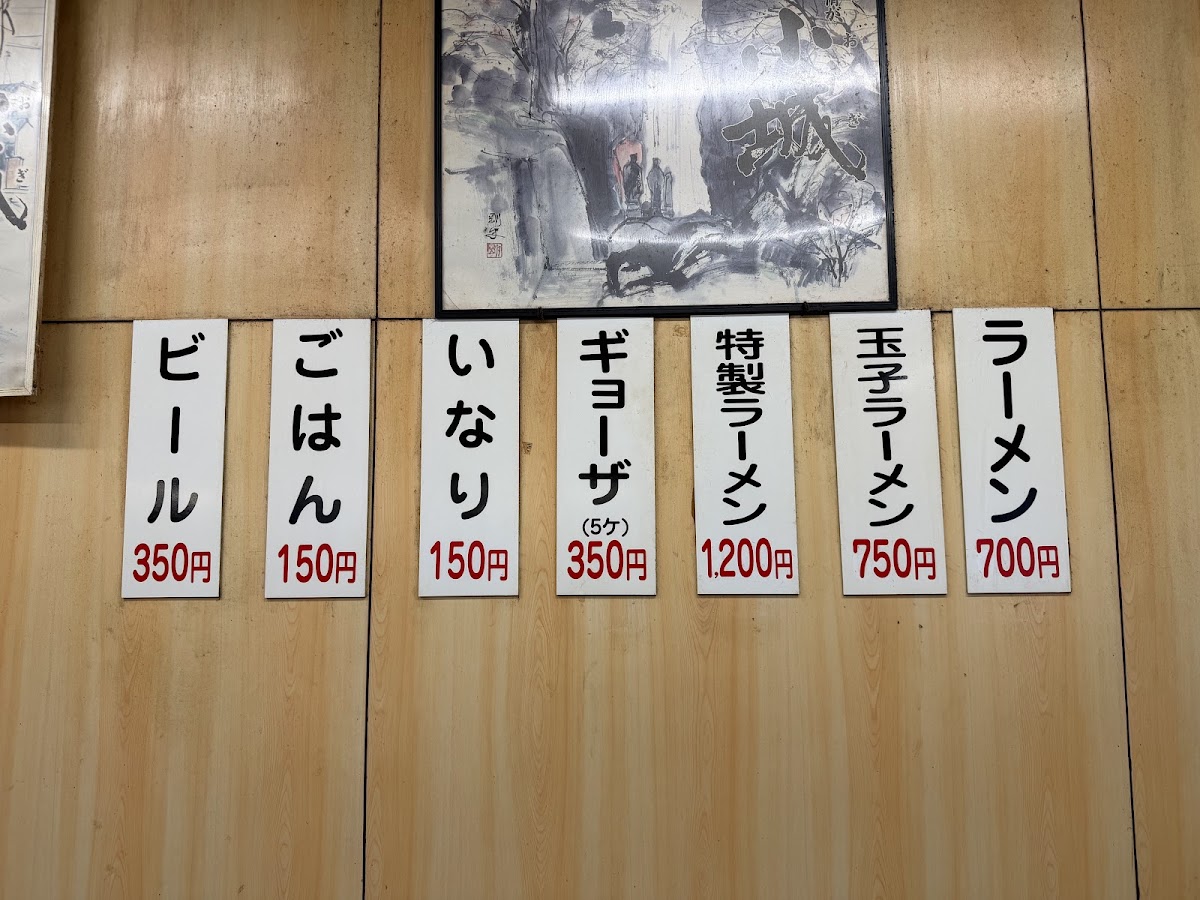 小城
おぎ
ラーメン
700円
玉子ラーメン
750円
特製ラーメン
1,200円
ギョーザ
(5ケ)
350円
いなり
150円
ごはん
150円
ビール
350円